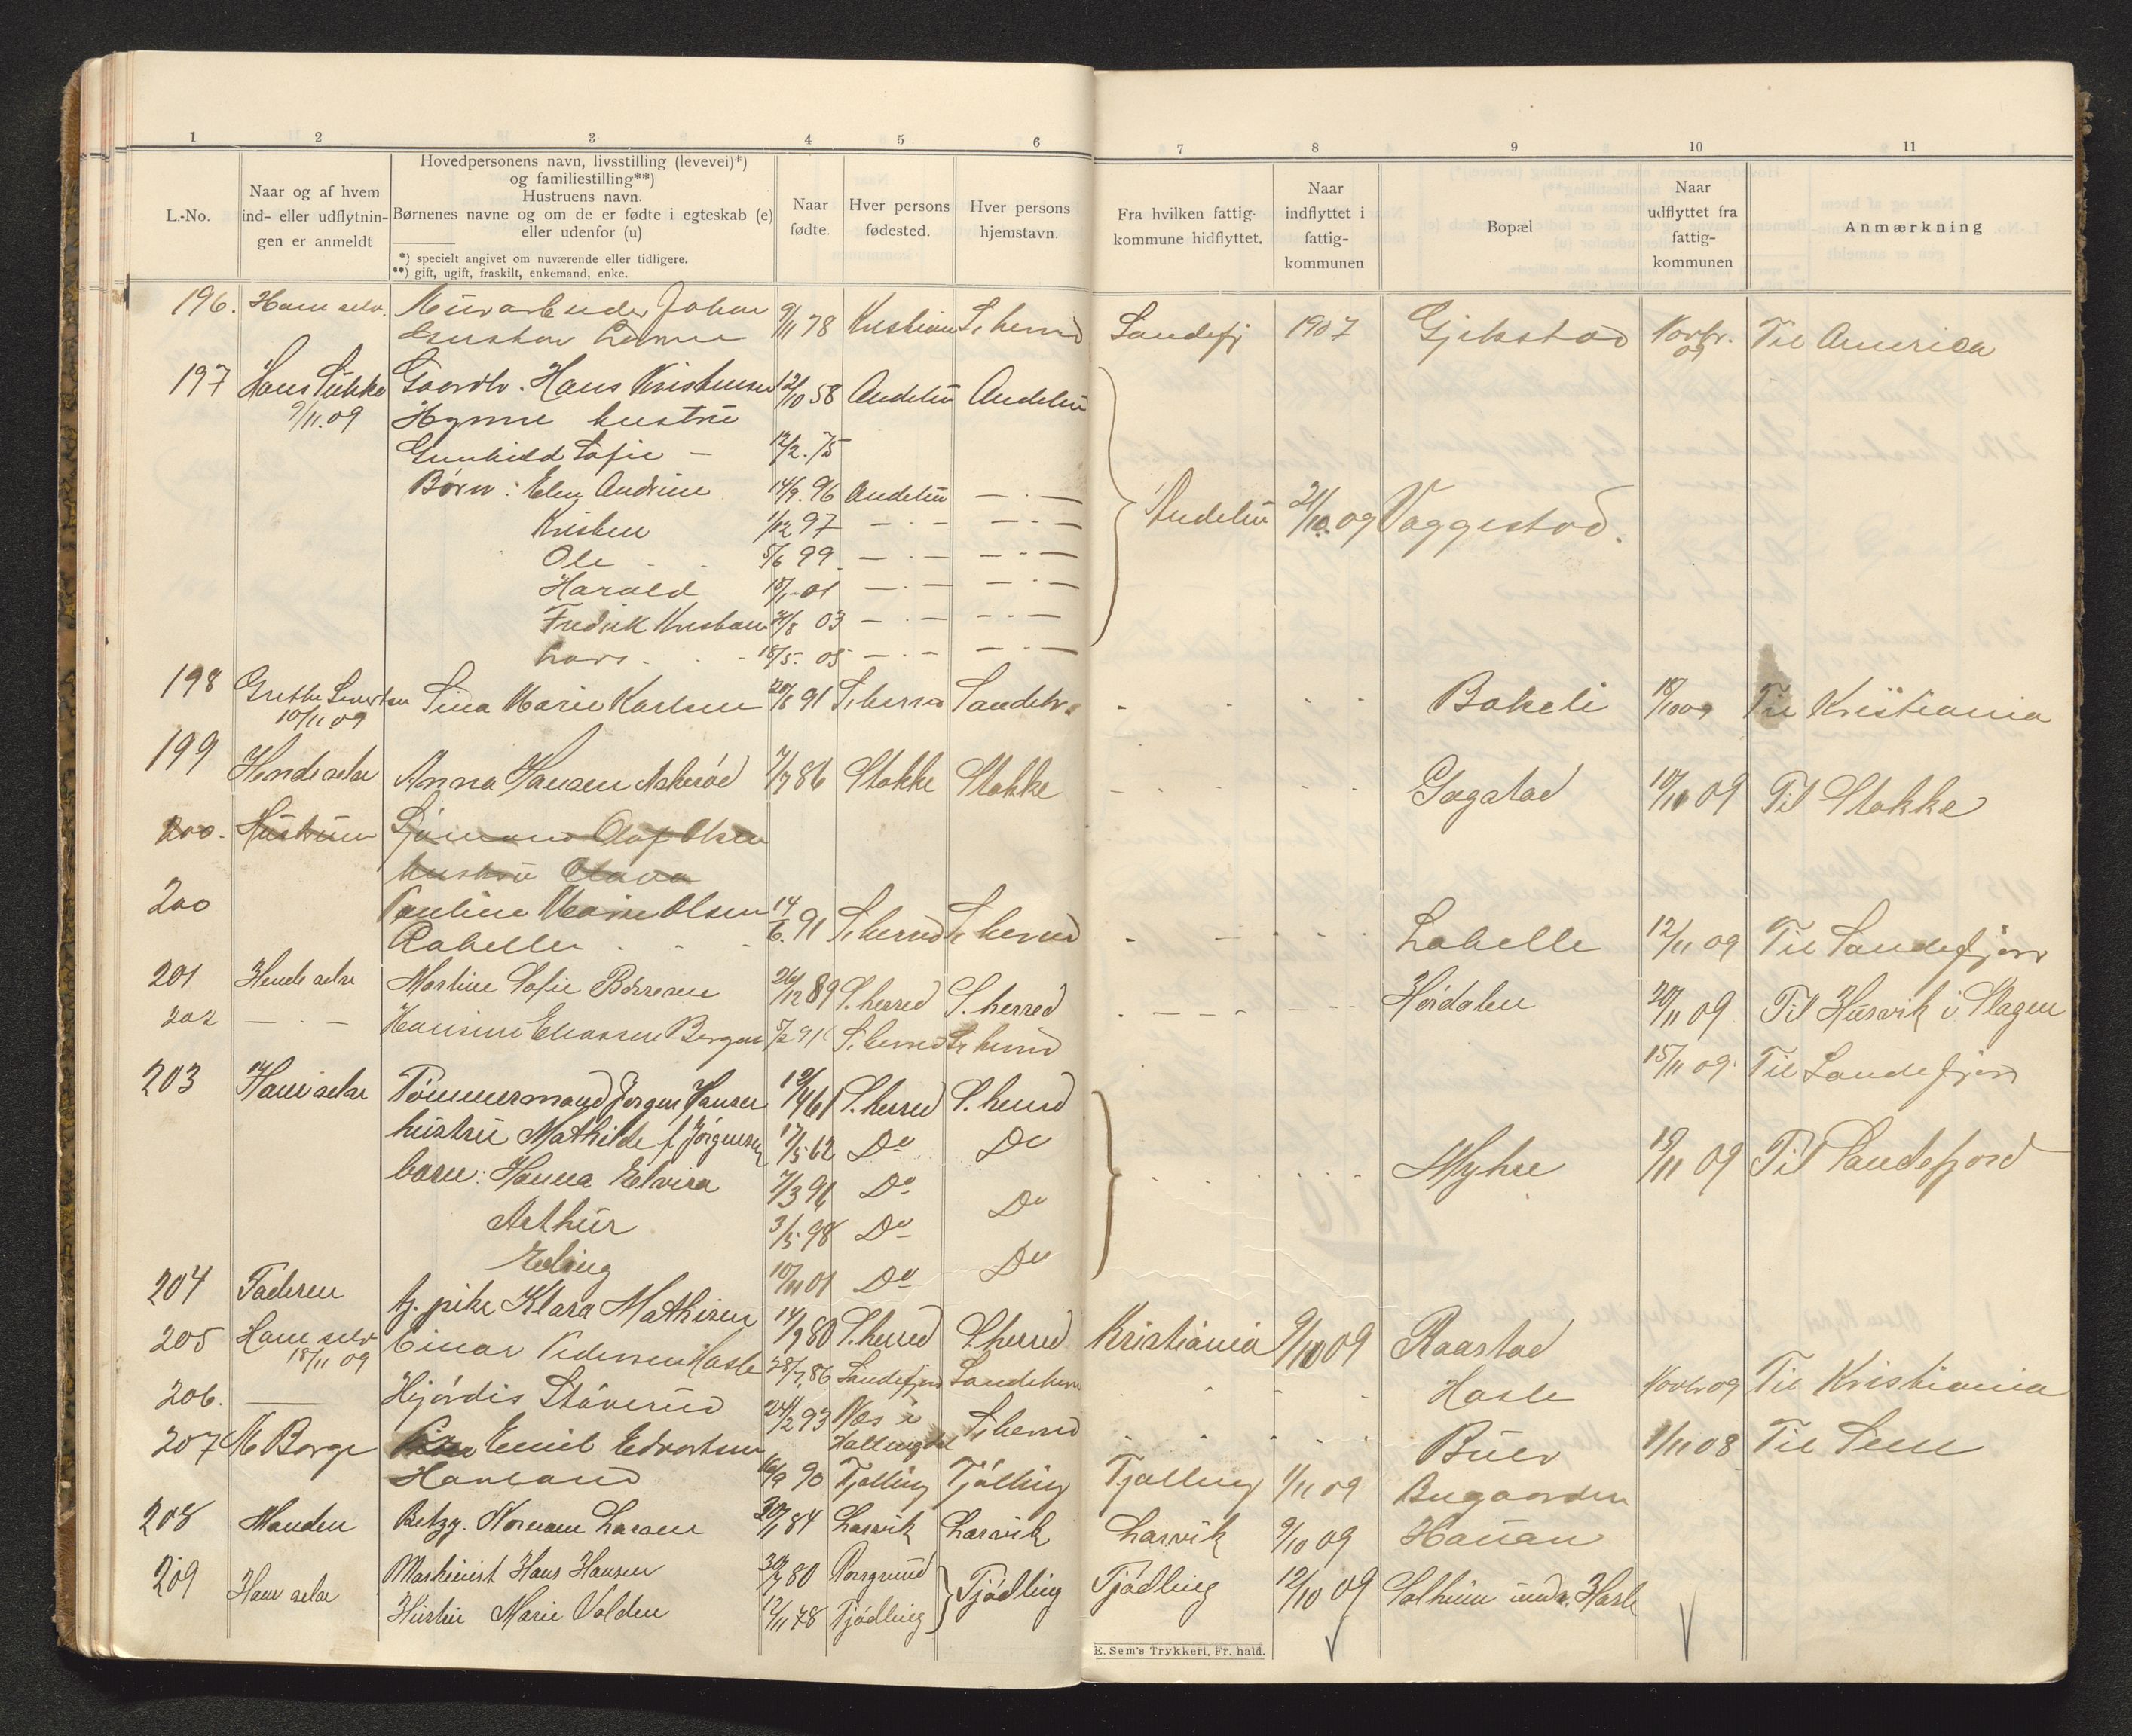 1 2 3 4 5 6 7 8 9 10 11
L.-No.
Naar og af hvem
ind- eller udflytnin-
gen er anmeldt
Hovedpersonens navn, livsstilling (levevei)*)
og familiestilling**)
Hustruens navn.
Børnenes navne og om de er fødte i egteskab (e)
eller udenfor (u)
*) specielt angivet om nuværende eller tidligere.
**) gift, ugift, fraskilt, enkemand, enke.
Naar
fødte.
Hver persons
fødested.
Hver persons
hjemstavn.
Fra hvilken fattig-
kommune hidflyttet.
Naar
indflyttet i
fattig-
kommunen
Bopæl
Naar
udflyttet fra
fattig-
kommunen
Anmærkning
196. Ham selv. Murarbeider Johan 9/11 78 Kristiania S.herred Sandefj 1907 Gjekstad Novbr. 09 Til America
Gustav
197 Hans Gaardbr. Hans Kristensen 12/10 58 Andebu Andebu
9/11.09 hustru
Gunhild Sofie — 12/2.75
Børn: Elen Andrine 14/9.96 Andebu — . — Andebu 21/10.09 Vaggestad.
Kristen 1/12 97 — . — — . —
Ole 5/6 99 — . — — . —
Harald 18/1-01 — . — — . —
Fredrik Kristian 21/8 03 — . — — . —
Lars 18/5. 05 — . — — . —
198 Grethe Sivertsen Sina Marie Karlsen 20/8 91 S.herred Sandehr. Bakeli 18/10 09 Til Kristiania
10/11 09
199 Hende selv Anna Hansen Askerød 7/7 86 Stokke Stokke Gogstad 10/11 09 Til Stokke
200. Hustruen Sjømand Olaf Olsen
hustru Olava
200 Pauline Marie Olsen 14/6.91 S.herred S.herred Labelle 12/11 09 Til Sandefjord
201 Hende selv Martine Sofie Börresen 26/12 89 S.herred S.herred Høidalen 20/11 09 Til Husvik i Slagen
202 — . — Hansine Eliassen Bergan 5/2 91 S.herred S.herred 15/11 09. Til Sandefjord
203 Ham selv Tömmermand Jørgen Hansen 19/4 61 S.herred S.herred
hustru Mathilde f. Jörgensen 17/5 62 Do Do
barn: Hanna Elvira 7/3 96 Do Myhre 19/11 09 Til Sandefjord
Arthur 3/5 98 Do Do
Erling 10/11 01 Do Do
204 Faderen tj. pike Klara Mathisen 14/9 80 S.herred S.herred Kristiania 9/10 09 Raastad
205 Ham selv Einar Pedersen Hasle 28/7 86 Sandefjord Sandeherr Hasle Novbr 09 Til Kristiania
18/11 09
206. — Hjördis Stöverud 24/2 93 Næs i S.herred Buer 1/11 08 Til Sem
Hallingdal
207 M Berge Emil Edvartsen
Havland 16/9 90 Tjølling Tjølling Tjølling 1/11 09 Bugaarden
208 Manden Betzy Norman Larsen 20/1 84 Larvik Larvik Larvik 9/10 09 Hauan
209 Ham selv Maskinist Hans Hansen 30/7 80 Porsgrund Tjödling Tjödling 12/10 09 Solheim undr. Hasle
Hustru Marie Volden 12/11 78 Tjödling
E. Sem's Trykkeri, Fr. hald.